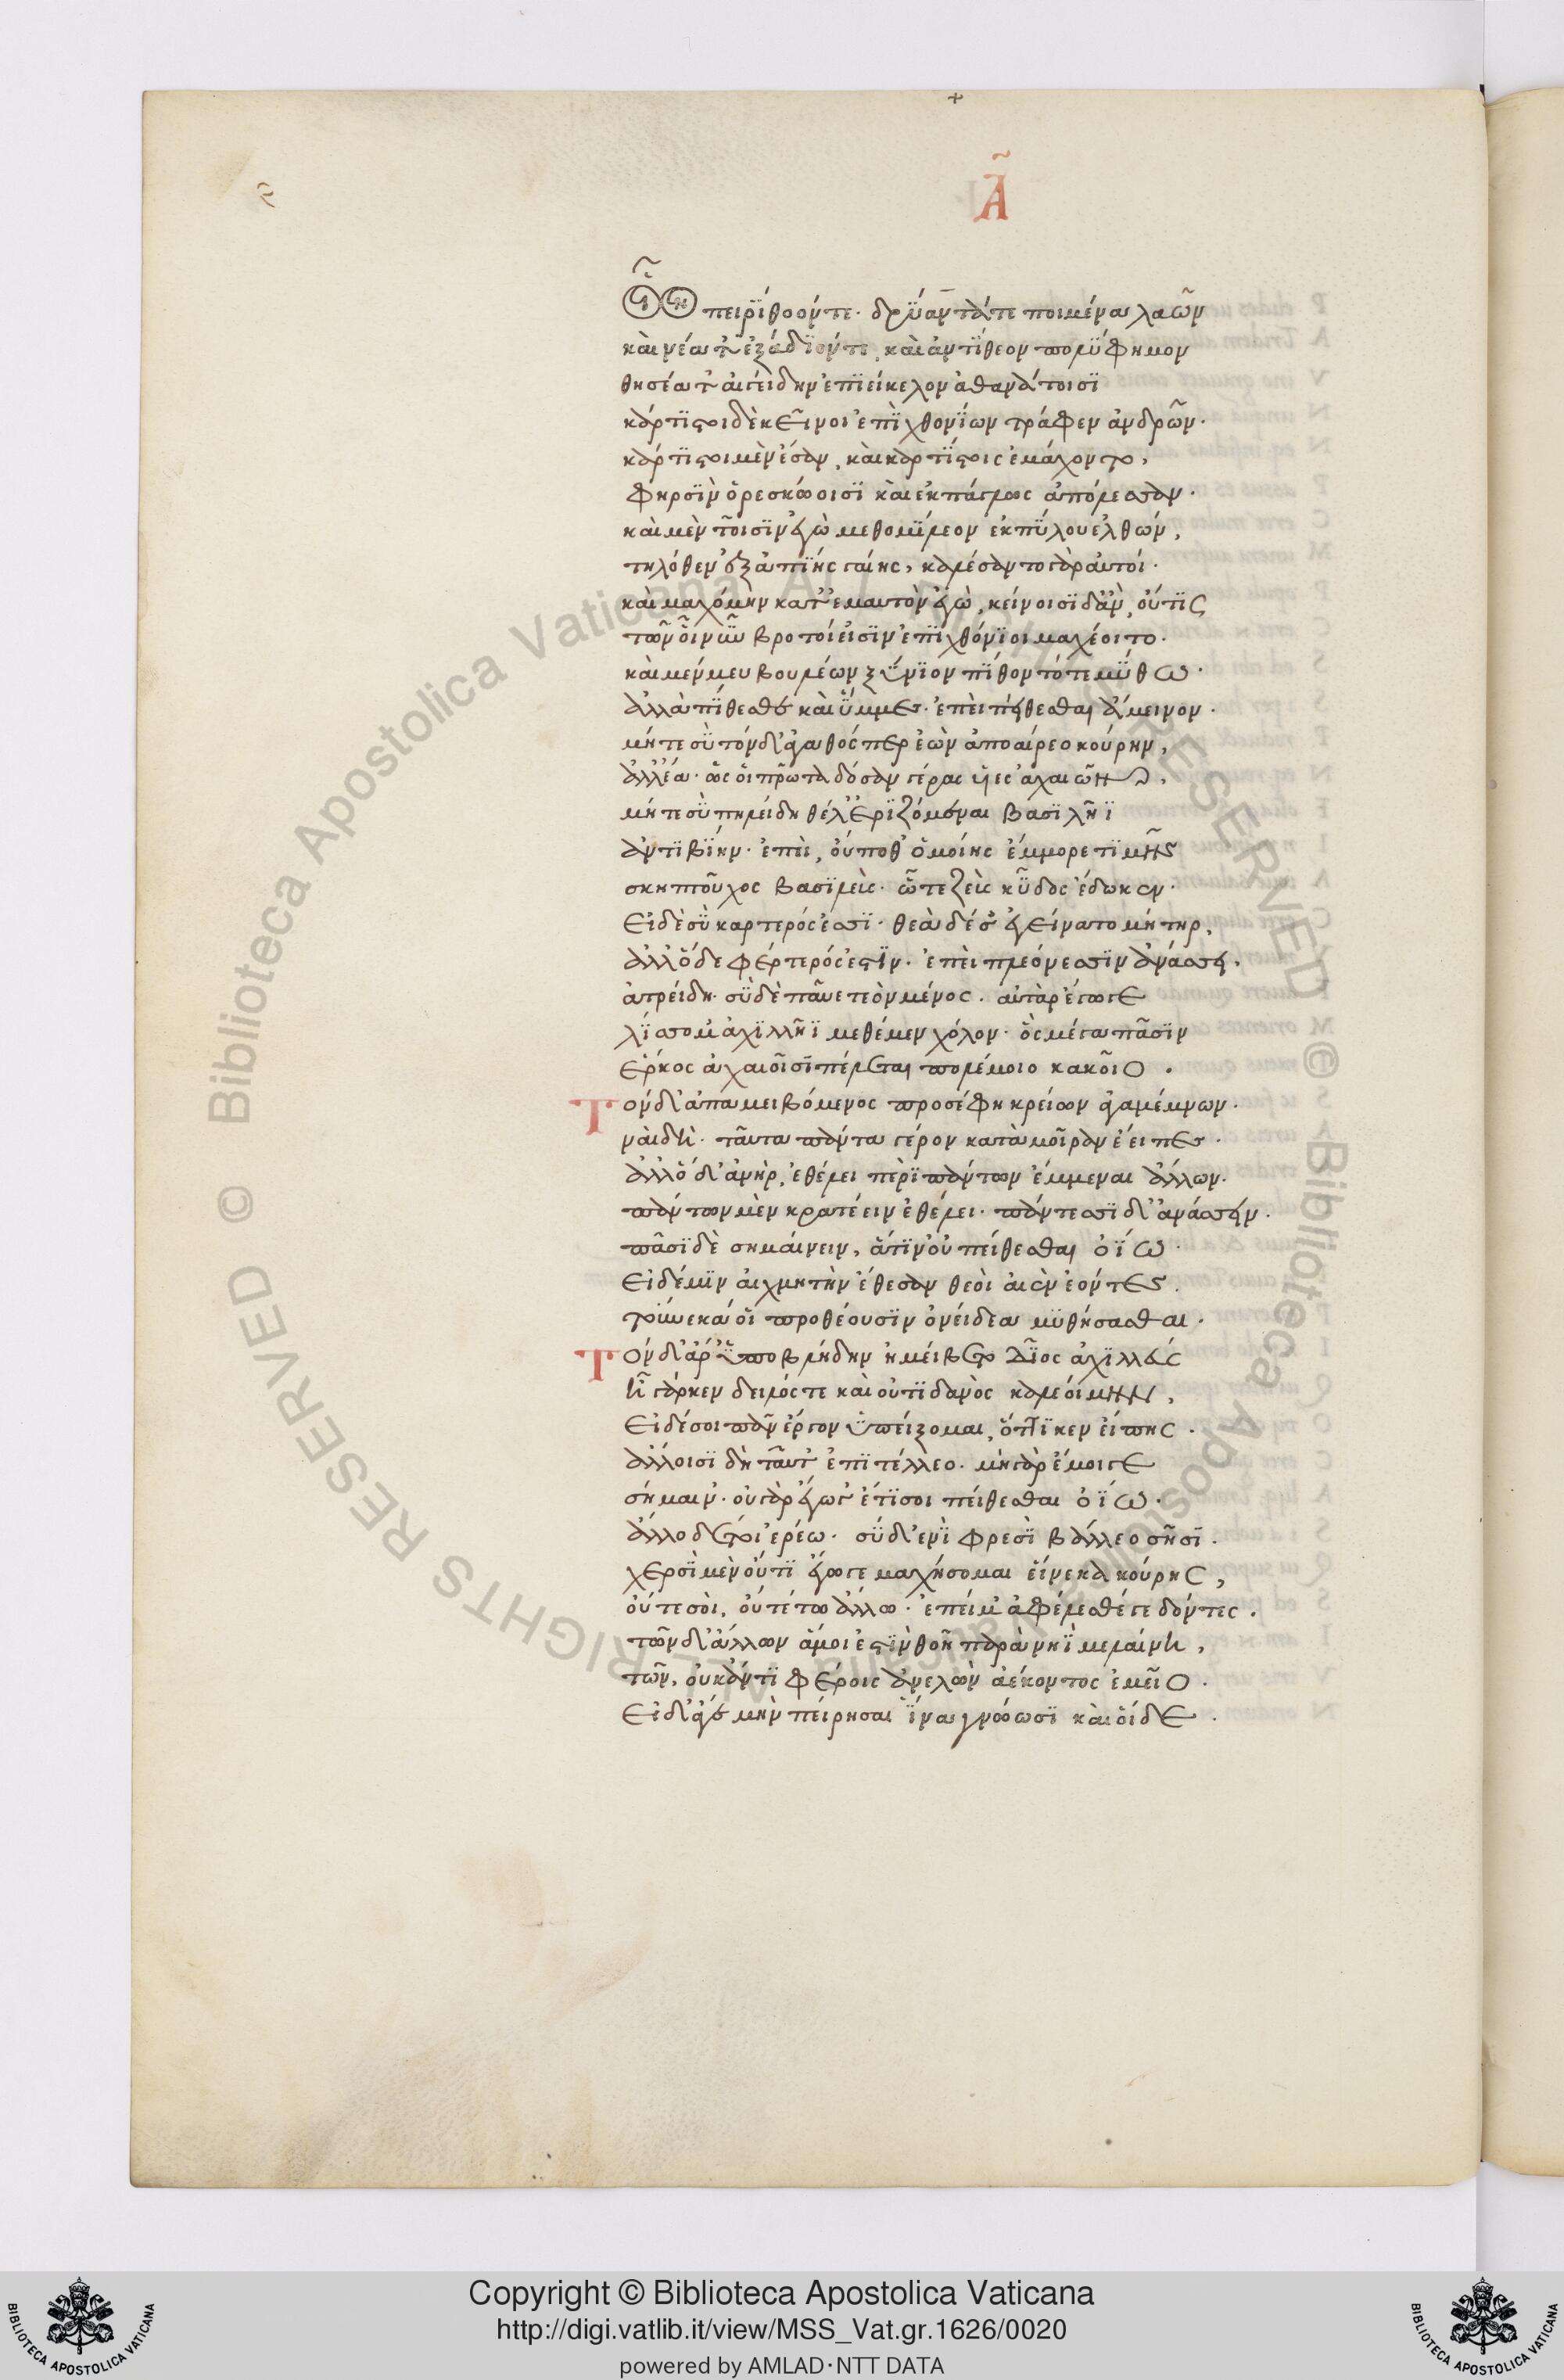 Α
Οἷον πειρίθοόν τε· δρύαντά τε ποιμένα λαῶν
καινέα τ' ἐξάδιόν τε, καὶ ἀντίθεον πολύφημον
θησέα τ' αἰγείδην ἐπιείκελον ἀθανάτοισι
κάρτιστοι δὲ κεῖνοι ἐπιχθονίων τράφεν ἀνδρῶν·
κάρτιστοι μὲν ἔσαν, καὶ καρτίστοις ἐμάχοντο,
φηρσὶν ὀρεσκώοισι καὶ ἐκπάγλως ἀπόλεσσαν·
καὶ μὲν τοῖσιν ἐγὼ μεθομίλεον ἐκ πύλου ἐλθών,
τηλόθεν ἐξ ἀπίης γαίης, καλέσαντο γὰρ αὐτοί·
καὶ μαχόμην κατ' ἐμαυτὸν ἐγὼ, κείνοισι δ' ἂν, οὔτις
τῶν οἳ νῦν βροτοί εἰσιν ἐπιχθόνιοι μαχέοιτο·
καὶ μέν μευ βουλέων ξύνιον πίθοντό τε μύθω·
ἀλλὰ πίθεσθε καὶ ὔμμες· ἐπεὶ πείθεσθαι ἄμεινον·
μήτε σὺ τόνδ' ἀγαθός περ ἐὼν ἀποαίρεο κούρην,
ἀλλ' ἔα· ὥς οἱ πρῶτα δόσαν γέρας υἷες ἀχαιῶν,
μήτε σὺ πηλείδη θέλ' ἐριζέμεναι βασιλῆϊ
ἀντιβίην· ἐπεὶ, οὔποθ' ὁμοίης ἔμμορε τιμῆς
σκηπτοῦχος βασιλεὺς· ᾧτε ζεὺς κῦδος ἔδωκεν·
Εἰ δὲ σὺ καρτερός ἐσσι· θεὰ δέ σ' ἐγείνατο μήτηρ,
ἀλλ' ὅδε φέρτερός ἐστιν· ἐπεὶ πλεόνεσσιν ἀνάσσει,
ἀτρείδη· σὺ δὲ παῦε τεὸν μένος. αὐτὰρ ἔγωγε
λίσσομ' ἀχιλλῆϊ μεθέμεν χόλον· ὃς μέγα πᾶσιν
ἕρκος ἀχαιοῖσι πέλεται πολέμοιο κακοῖο.
Τὸν δ' ἀπαμειβόμενος προσέφη κρείων ἀγαμέμνων·
ναὶ δὴ· ταῦτα πάντα γέρον κατὰ μοῖραν ἔειπες·
ἀλλ' ὅδ' ἀνὴρ, ἐθέλει περὶ πάντων ἔμμεναι ἄλλων·
πάντων μὲν κρατέειν ἐθέλει· πάντεσσι δ' ἀνάσσειν·
πᾶσι δὲ σημαίνειν, ἅτιν' οὐ πείθεσθαι ὀΐω·
Εἰ δέ μιν αἰχμητὴν ἔθεσαν θεοὶ αἰὲν ἐόντες.
τοὔνεκά οἱ προθέουσιν ὀνείδεα μυθήσασθαι·
Τὸν δ' ἄρ' ὑποβλήδην ἠμείβετο δῖος ἀχιλλεύς
ἦ γάρ κεν δειλός τε καὶ οὐτιδανὸς καλεοίμην,
Εἰ δέ σοι πᾶν ἔργον ὑπείξομαι, ὅττι κεν εἴπης·
ἄλλοισι δὴ ταῦτ' ἐπιτέλλεο· μὴ γὰρ ἔμοιγε
σήμαιν'· οὐ γὰρ ἔγωγ' ἔτι σοι πείθεσθαι ὀΐω·
ἄλλο δέ τοι ἐρέω· σὺ δ' ἐνὶ φρεσὶ βάλλεο σῇσι·
χερσὶ μὲν οὔτι ἔγωγε μαχήσομαι εἵνεκα κούρης,
οὔτε σοὶ, οὔτέ τω ἄλλω· ἐπεί μ' ἀφέλεσθέ γε δόντες·
τῶν δ' ἄλλων ἅ μοι ἐστὶν θοῇ παρὰ νηῒ μελαίνη,
τῶν, οὐκ ἄν τι φέροις ἀνελὼν ἀέκοντος ἐμεῖο·
Εἰ δ' ἄγε μὴν πείρησαι ἵνα γνώωσι καὶ οἵδε·
© Biblioteca Apostolica Vaticana ALL RIGHTS RESERVED
Copyright © Biblioteca Apostolica Vaticana
http://digi.vatlib.it/view/MSS_Vat.gr.1626/0020
powered by AMLAD·NTT DATA
BIBLIOTECA APOSTOLICA VATICANA
BIBLIOTECA APOSTOLICA VATICANA